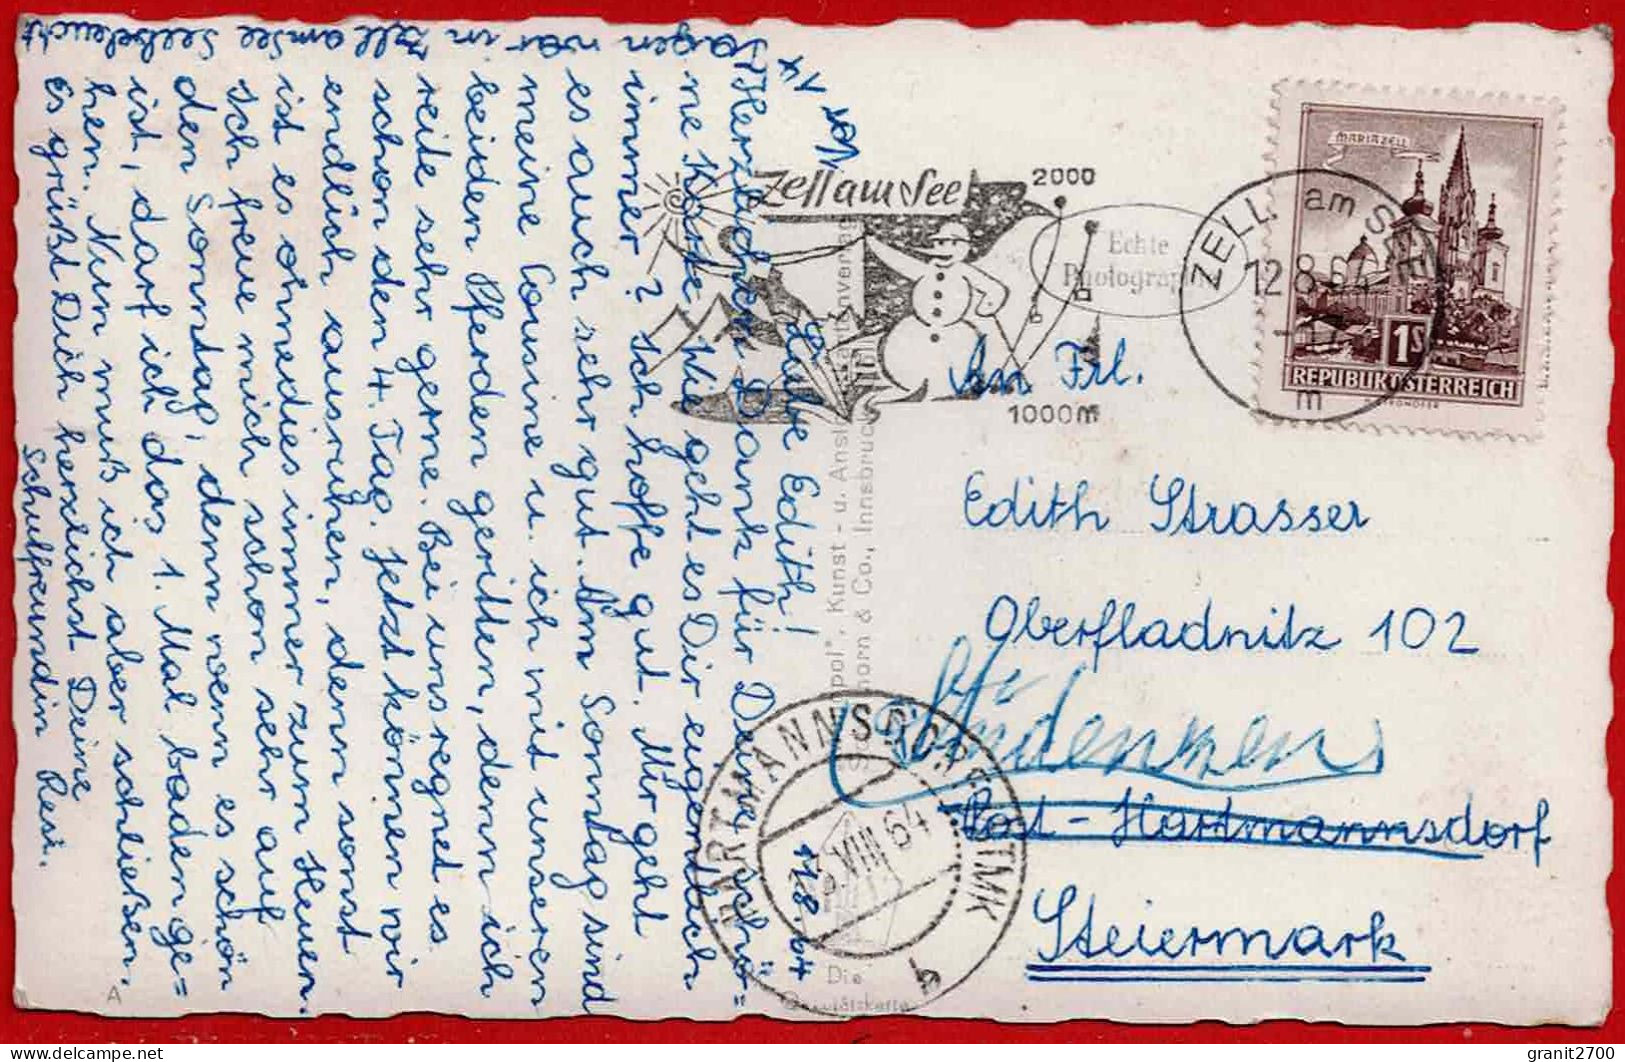 Zell am See
2000
1000m
Echte
Photographie
ZELL am SEE
12.8.64
m
MARIAZELL
1S
REPUBLIK ÖSTERREICH
An Frl.
Edith Strasser
Oberfladnitz 102
Post - Hartmannsdorf
Steiermark
HARTMANNSDORF STMK
XIII 64
b
11.8.64
Liebe Edith!
Herzlichen Dank für Deine schö-
ne Karte. Wie geht es Dir eigentlich
immer? Ich hoffe gut. Mir geht
es auch sehr gut. Am Sonntag sind
meine Cousine u. ich mit unseren
beiden Pferden geritten, denn ich
reite sehr gerne. Bei uns regnet es
schon den 4. Tag. Jetzt können wir
endlich ausruhen, denn sonst
ist es ohnedies immer zum Heuen.
Ich freue mich schon sehr auf
den Sonntag, denn wenn es schön
ist, darf ich das 1. Mal baden ge=
hen. Nun muß ich aber schließen.
Es grüßt Dich herzlichst Deine
Schulfreundin Resi.
Vor 14
Tagen war in Zell am See Seebeleucht
Kunst - u.
Co., Innsbruck
Die
Qualitätskarte
A
granit2700
delcampe.net